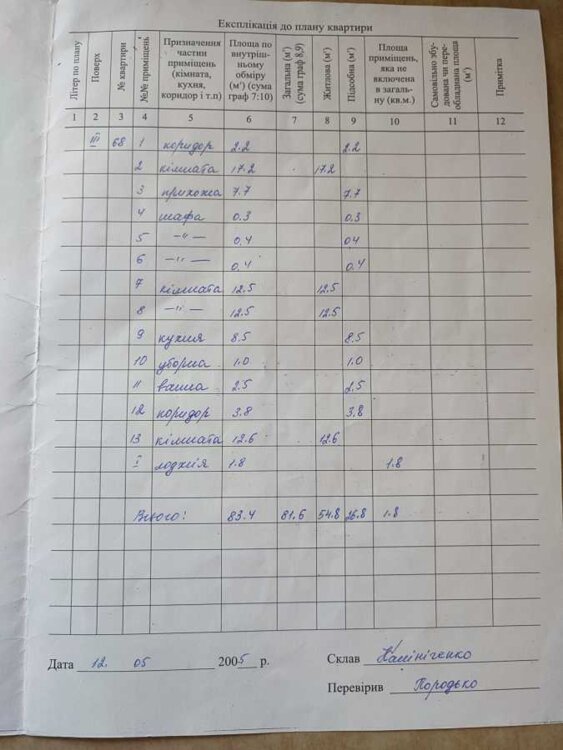 Експлікація до плану квартири
Літер по плану | Поверх | № квартири | №№ приміщень | Призначення частини приміщень (кімната, кухня, коридор і т.п) | Площа по внутрішньому обміру (м²) (сума граф 7:10) | Загальна (м²) (сума граф 8,9) | Житлова (м²) | Підсобна (м²) | Площа приміщень, яка не включена в загальну (кв.м.) | Самовільно збудована чи переобладнана площа (м²) | Примітка
1 2 3 4 5 6 7 8 9 10 11 12
III 68 1 коридор 2.2 2.2
2 кімната 17.2 17.2
3 прихожа 7.7 7.7
4 шафа 0.3 0.3
5 —"— 0.4 04
6 —"— 0.4 0.4
7 кімната 12.5 12.5
8 —"— 12.5 12.5
9 кухня 8.5 8.5
10 уборна 1.0 1.0
11 ванна 2.5 2.5
12 коридор 3.8 3.8
13 кімната 12.6 12.6
I лоджія 1.8 1.8
Всього: 83.4 81.6 54.8 26.8 1.8
Дата 12. 05 2005 р.
Склав
Перевірив Породько